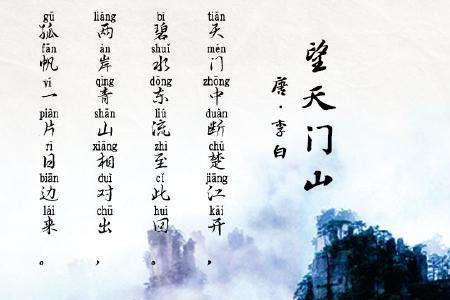 望天门山
唐·李白
tiān mén zhōng duàn chǔ jiāng kāi
天门中断楚江开，
bì shuǐ dōng liú zhì cǐ huí
碧水东流至此回。
liǎng àn qīng shān xiāng duì chū
两岸青山相对出，
gū fān yī piàn rì biān lái
孤帆一片日边来。